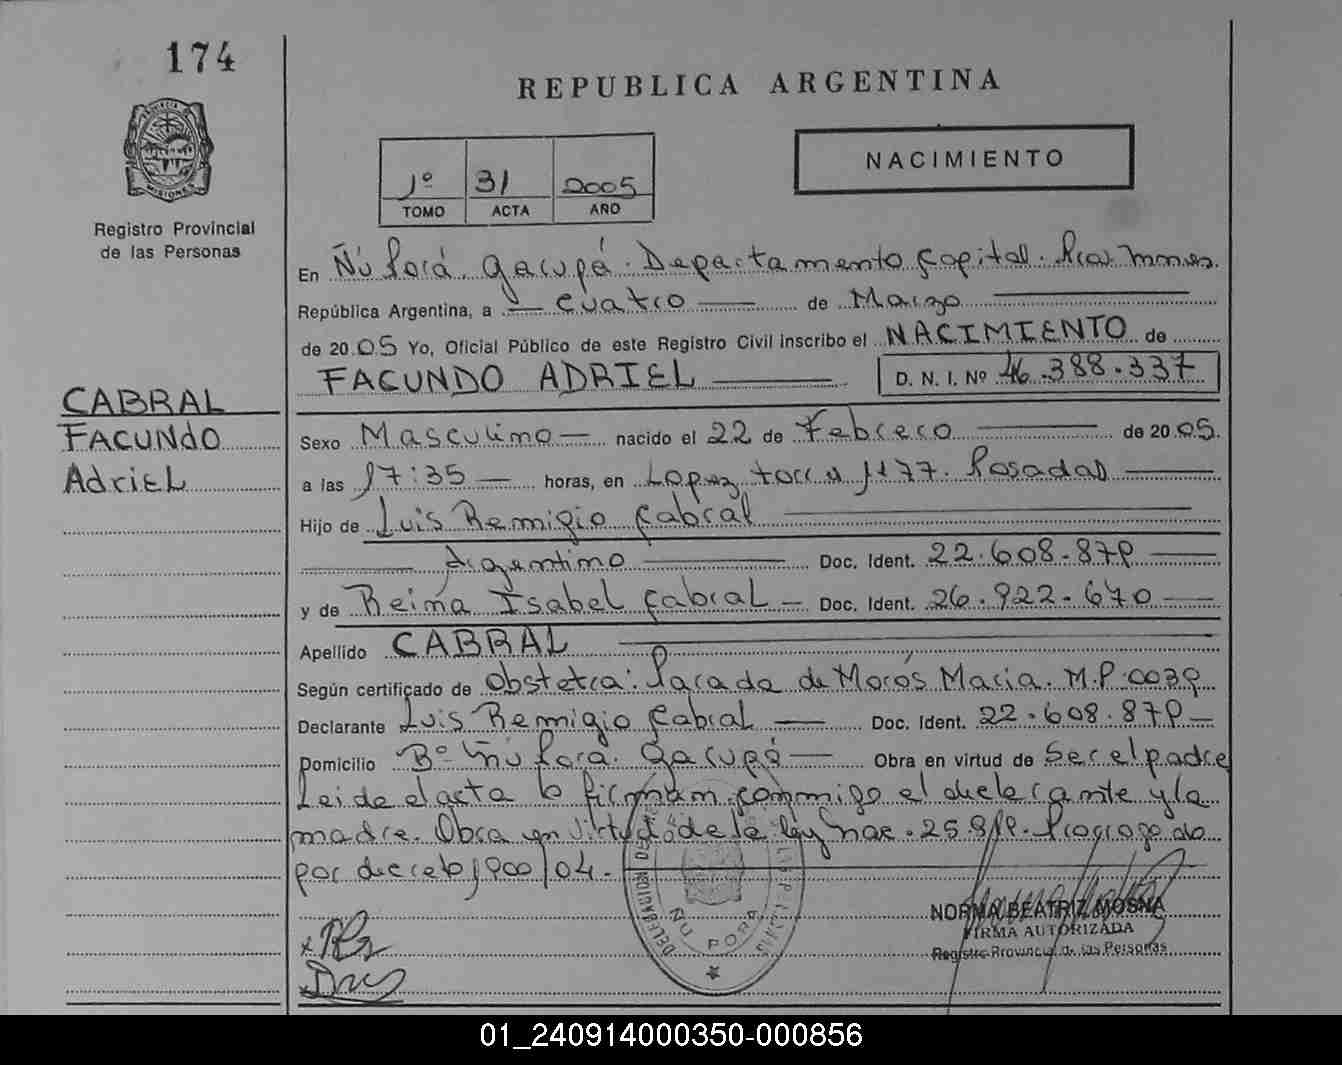 174
REPUBLICA ARGENTINA
NACIMIENTO
1º 31 2005
TOMO ACTA AÑO
PROVINCIA DE MISIONES
Registro Provincial
de las Personas
En Ñu Porá. Garupá. Departamento Capital. Pcia. Mnes.
República Argentina, a cuatro de Marzo
de 2005 Yo, Oficial Público de este Registro Civil inscribo el NACIMIENTO de
FACUNDO ADRIEL D. N. I. Nº 46.388.337
CABRAL
FACUNdO
AdriEL
Sexo Masculino nacido el 22 de Febrero de 2005.
a las 17:35 horas, en Lopez torres 1177. Posadas
Hijo de Luis Remigio Cabral
Argentino Doc. Ident. 22.608.879
y de Reina Isabel Cabral Doc. Ident. 26.922.670
Apellido CABRAL
Según certificado de Obstetra: Parada de Morós María. M.P. 0039
Declarante Luis Remigio Cabral Doc. Ident. 22.608.879
Domicilio Bº Ñu Porá. Garupá Obra en virtud de Ser el padre
Leida el acta la firman conmigo el declarante y la
madre. Obra en virtud de la ley nac. 25.819. Prorrogado
por decreto 1900/04.
ÑU PORA
NORMA BEATRIZ MOSNA
FIRMA AUTORIZADA
Registro Provincial de las Personas
01_240914000350-000856